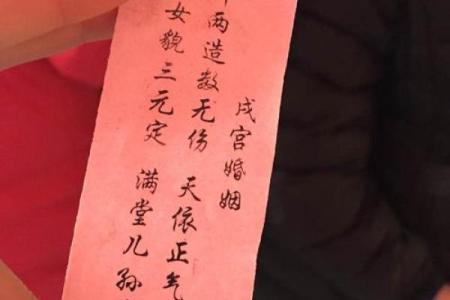 戌宫婚姻
两造数无伤 天依正气
女貌三元定 满堂儿孙